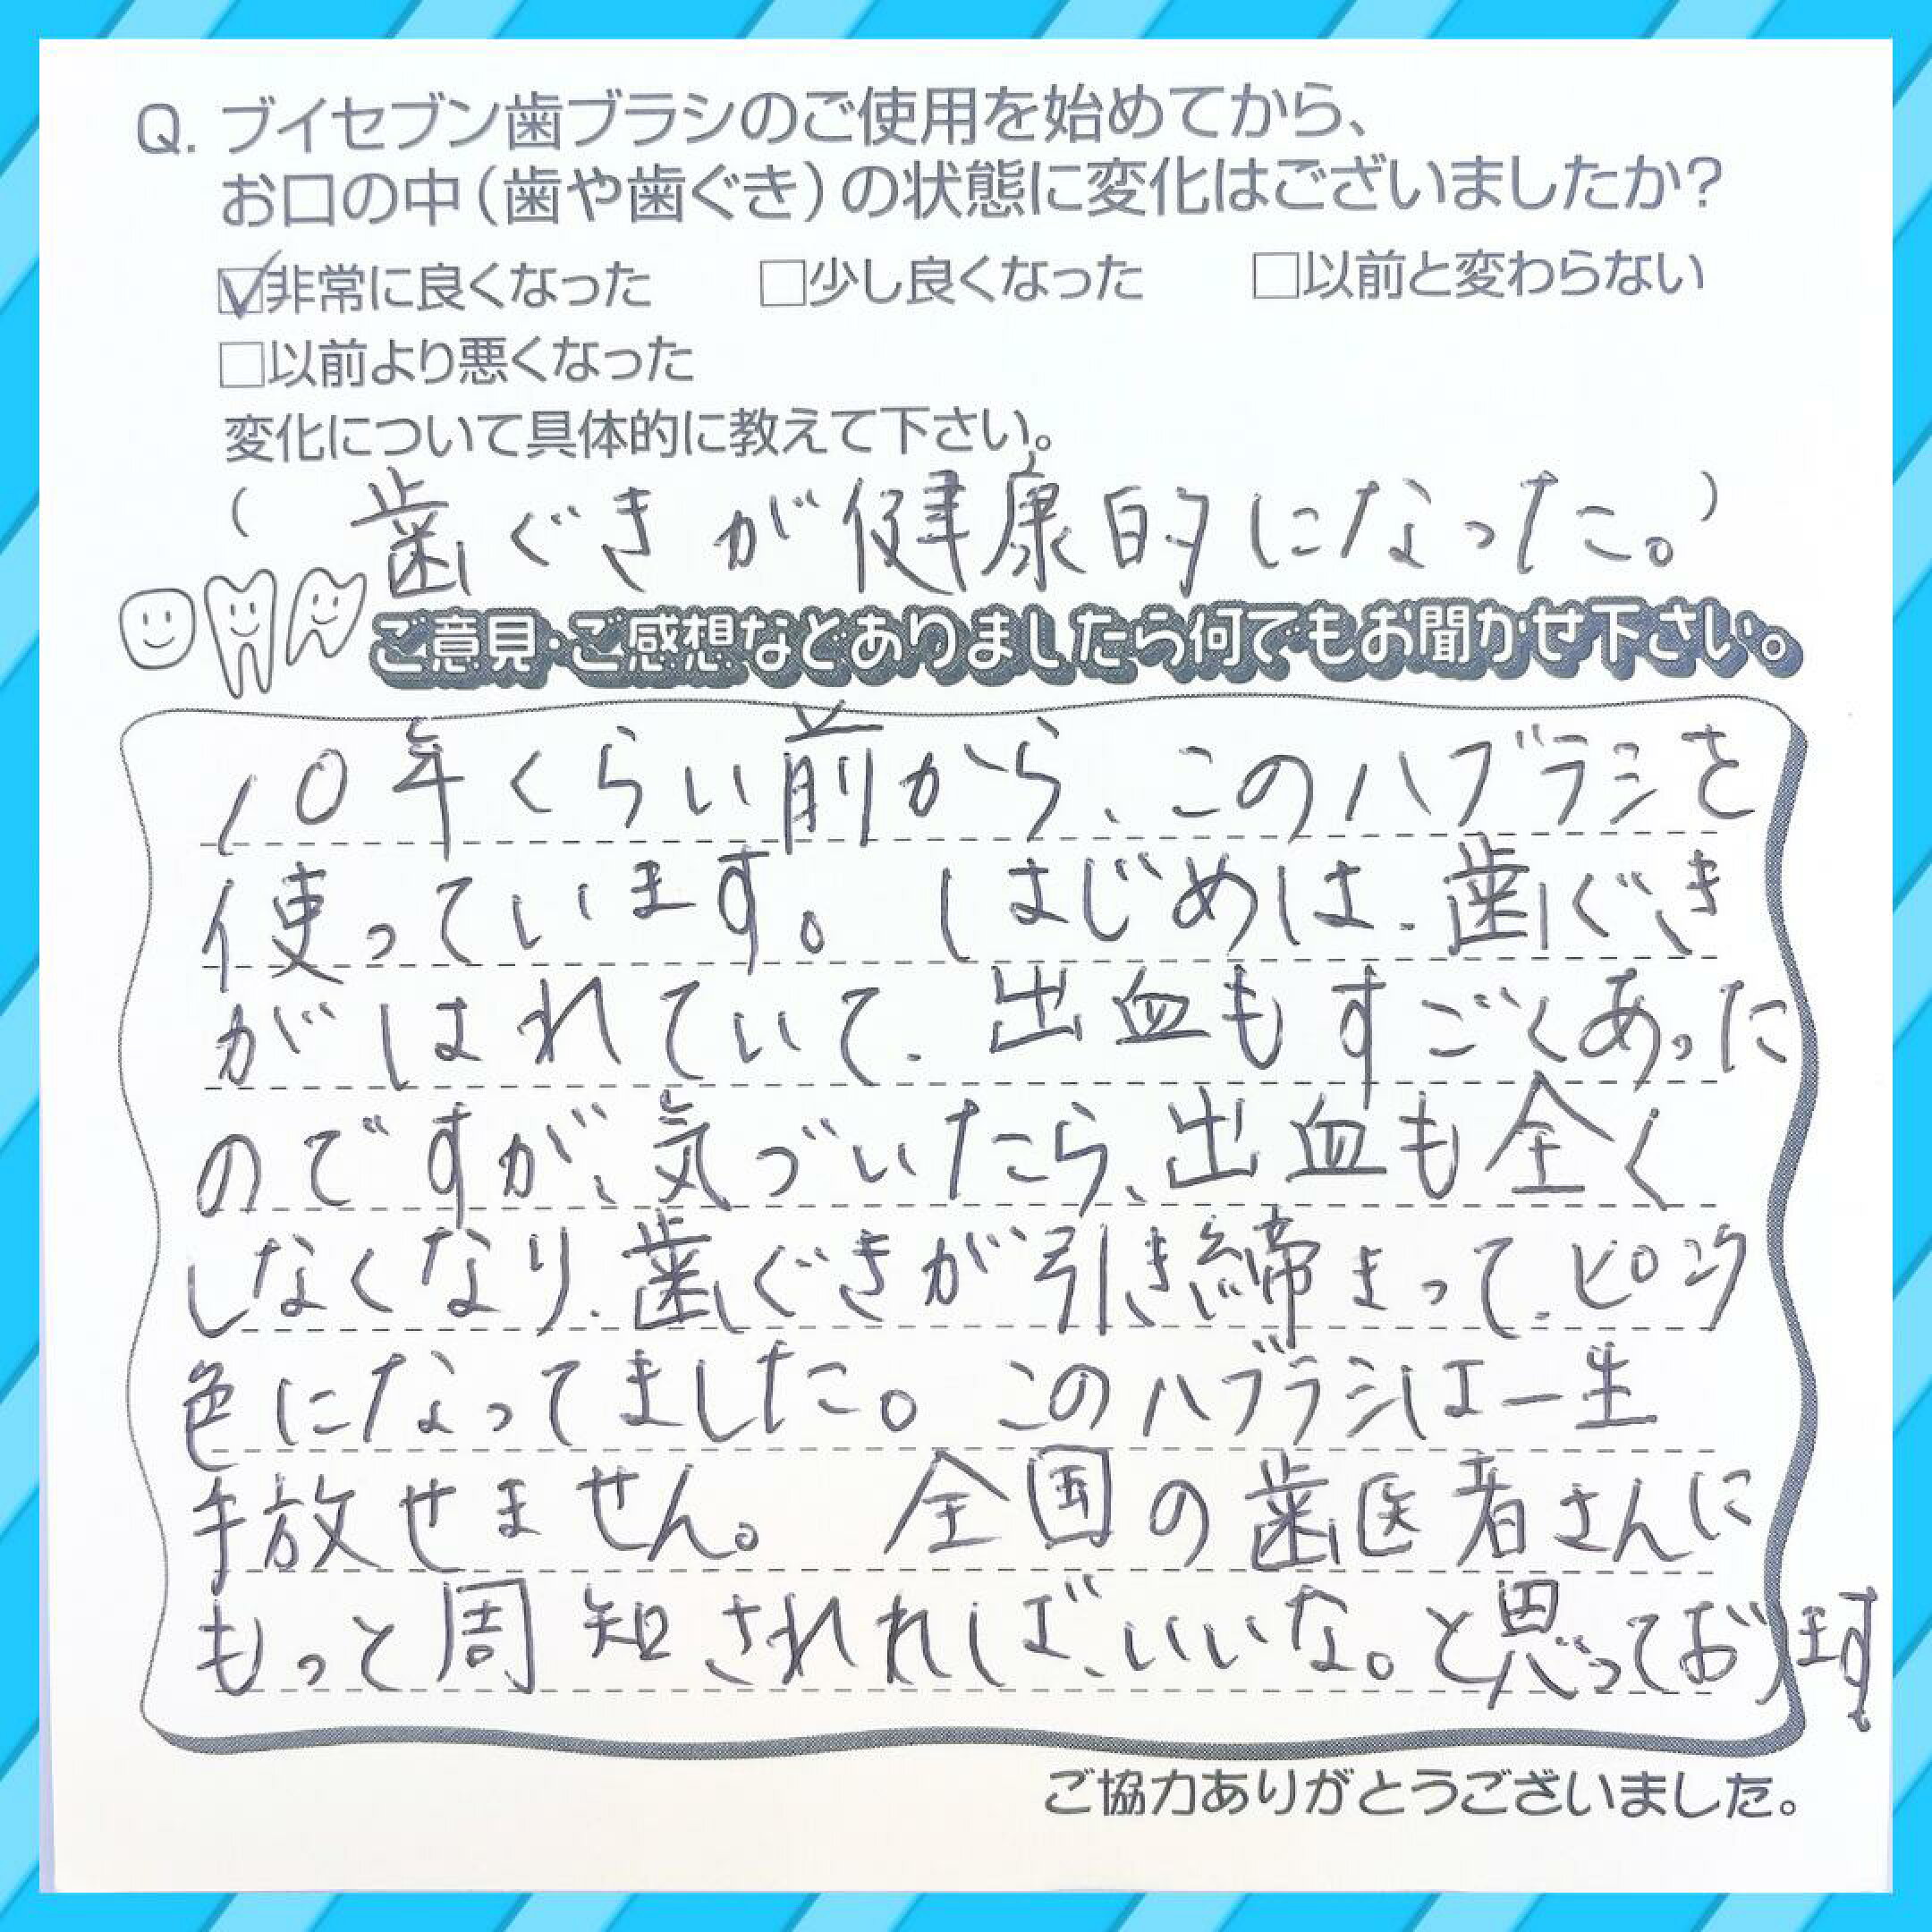 Q. ブイセブン歯ブラシのご使用を始めてから、
お口の中(歯や歯ぐき)の状態に変化はございましたか?
☑非常に良くなった □少し良くなった □以前と変わらない
□以前より悪くなった
変化について具体的に教えて下さい。
( 歯ぐきが健康的になった。)
ご意見・ご感想などありましたら何でもお聞かせ下さい。
10年くらい前から、このハブラシを
使っています。はじめは、歯ぐき
がはれていて、出血もすごくあった
のですが、気づいたら、出血も全く
しなくなり、歯ぐきが引き締まって、ピンク
色になってました。このハブラシは一生
手放せません。全国の歯医者さんに
もっと周知されれば、いいな。と思っております
ご協力ありがとうございました。